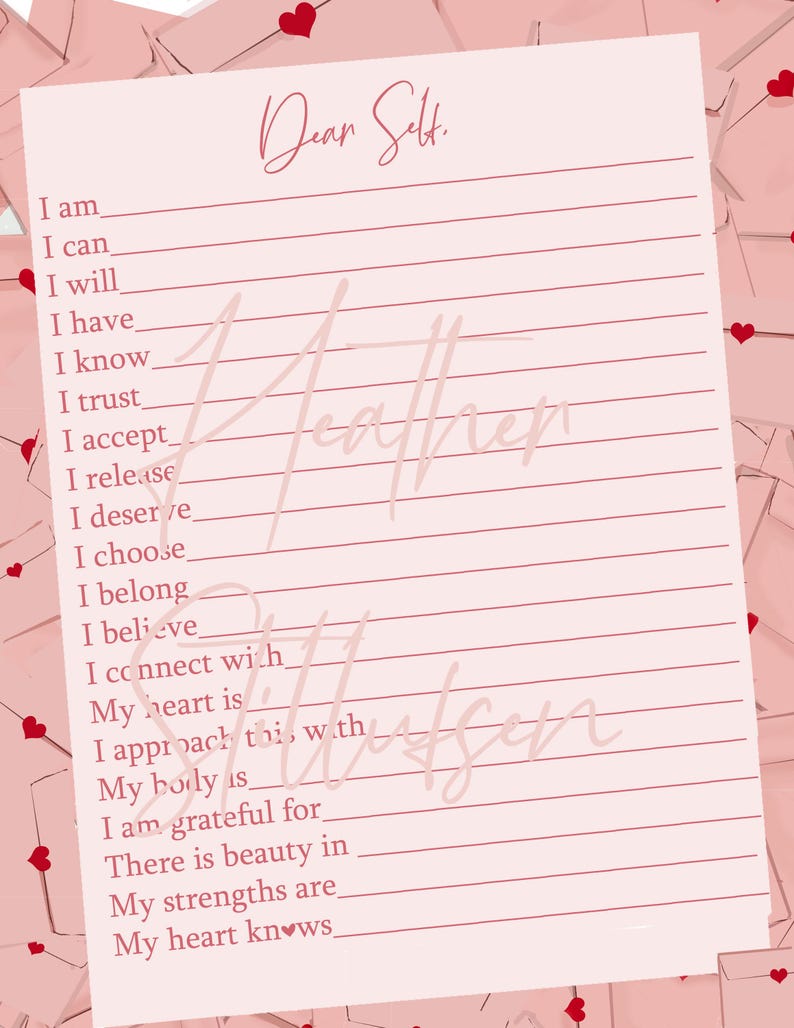 Dear Self,
I am
I can
I will
I have
I know
I trust
I accept
I release
I deserve
I choose
I belong
I believe
I connect with
My heart is
I approach this with
My body is
I am grateful for
There is beauty in
My strengths are
My heart kn♥ws
Heather
Stillufsen